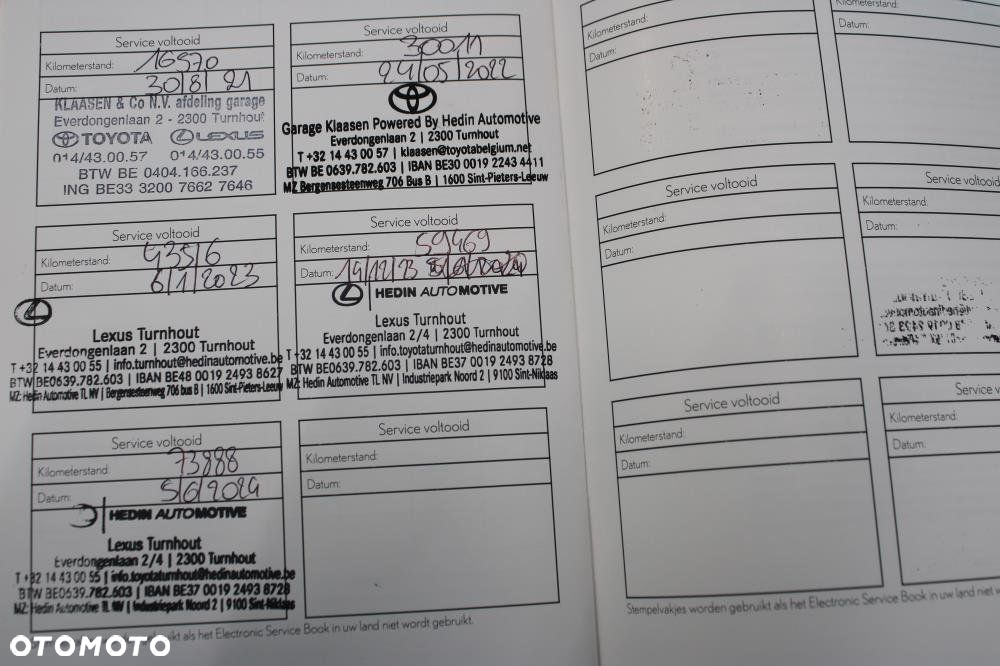 Service voltooid
Kilometerstand: 16970
Datum: 30/8/21
KLAASEN & Co N.V. afdeling garage
Everdongenlaan 2 - 2300 Turnhout
TOYOTA LEXUS
014/43.00.57 014/43.00.55
BTW BE 0404.166.237
ING BE33 3200 7662 7646
Service voltooid
Kilometerstand: 30011
Datum: 24/05/2022
Garage Klaasen Powered By Hedin Automotive
Everdongenlaan 2 | 2300 Turnhout
T +32 14 43 00 57 | klaasen@toyotabelgium.net
BTW BE 0639.782.603 | IBAN BE30 0019 2243 4411
MZ Bergensesteenweg 706 Bus B | 1600 Sint-Pieters-Leeuw
Service voltooid
Kilometerstand: 43516
Datum: 6/1/2023
Lexus Turnhout
Everdongenlaan 2 | 2300 Turnhout
T +32 14 43 00 55 | info.turnhout@hedinautomotive.be
BTW BE0639.782.603 | IBAN BE48 0019 2493 8627
MZ: Hedin Automotive TL NV | Bergensesteenweg 706 bus B | 1600 Sint-Pieters-Leeuw
Service voltooid
Kilometerstand: 59469
Datum: 14/12/23
HEDIN AUTOMOTIVE
Lexus Turnhout
Everdongenlaan 2/4 | 2300 Turnhout
T +32 14 43 00 55 | info.toyotaturnhout@hedinautomotive.be
BTW BE0639.782.603 | IBAN BE37 0019 2493 8728
MZ: Hedin Automotive TL NV | Industriepark Noord 2 | 9100 Sint-Niklaas
Service voltooid
Kilometerstand: 73888
Datum: 5/6/2024
HEDIN AUTOMOTIVE
Lexus Turnhout
Everdongenlaan 2/4 | 2300 Turnhout
T +32 14 43 00 55 | info.toyotaturnhout@hedinautomotive.be
BTW BE0639.782.603 | IBAN BE37 0019 2493 8728
MZ: Hedin Automotive TL NV | Industriepark Noord 2 | 9100 Sint-Niklaas
Service voltooid
Kilometerstand:
Datum:
gebruikt als het Electronic Service Book in uw land niet wordt gebruikt.
Kilometerstand:
Datum:
Kilometerstand:
Datum:
Service voltooid
Kilometerstand:
Datum:
Service voltooid
Kilometerstand:
Datum:
Service voltooid
Kilometerstand:
Datum:
Service
Kilometerstand:
Datum:
Stempelvakjes worden gebruikt als het Electronic Service Book in uw land niet
OTOMOTO